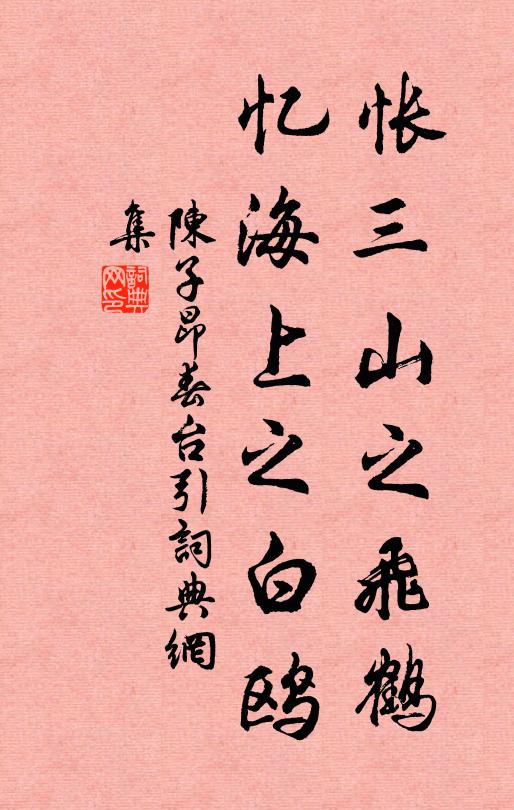 怅三山之飛鶴
忆海上之白鸥
陳子昂春台引詞典網
集
詞典
网印